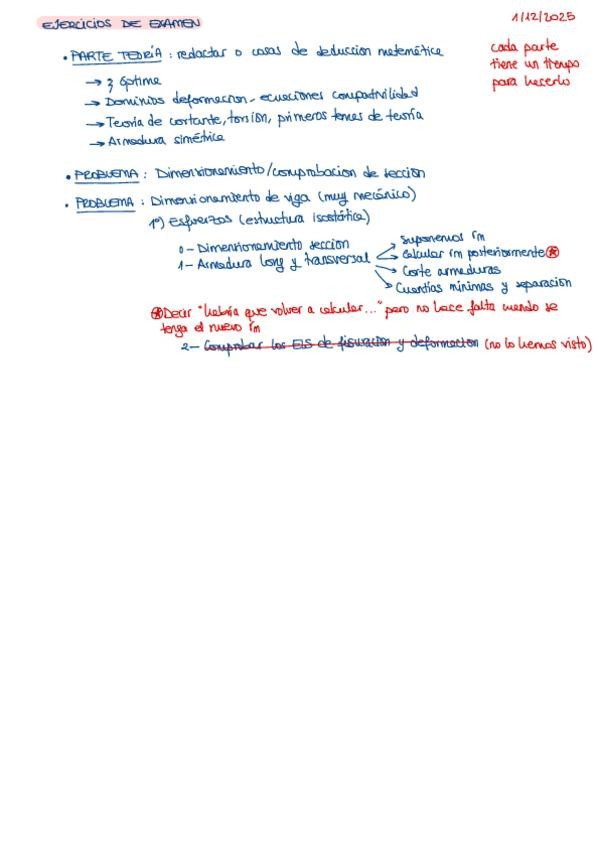 EJERCICIOS DE EXAMEN
1/12/2025
cada parte
tiene un tiempo
para hacerlo
• PARTE TEORÍA : redactar o cosas de deduccion matemática
→ ξ óptimo
→ Dominios deformacion - ecuaciones compatibilidad
→ Teoría de cortante, torsión, primeros temas de teoría
→ Armadura simétrica
• PROBLEMA : Dimensionamiento/comprobacion de sección
• PROBLEMA : Dimensionamiento de viga (muy mecánico)
1º) Esfuerzos (estructura isostática)
0 - Dimensionamiento seccion
1 - Armadura long y transversal
Suponemos rm
Calcular rm posteriormente ⊛
Corte armaduras
Cuantías mínimas y separación
⊛ Decir "habría que volver a calcular..." pero no hace falta cuando se
tenga el nuevo rm
2 - Comprobar los ELS de fisuración y deformacion (no lo hemos visto)